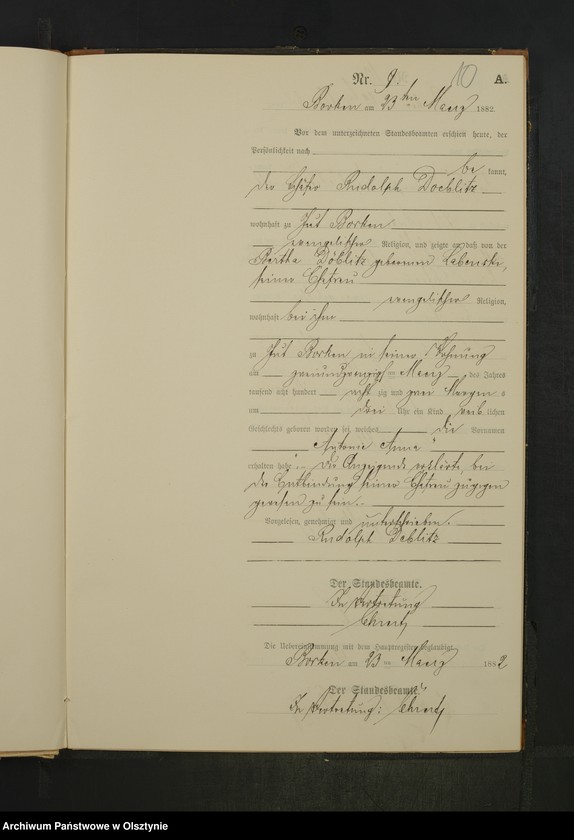 Nr. 9. 10 A.
Borken am 23ten Maerz 1882.
Vor dem unterzeichneten Standesbeamten erschien heute, der
Persönlichkeit nach
be kannt,
der Schäfer Rudolph Doeblitz
wohnhaft zu Gut Borken
evangelischer Religion, und zeigte an, daß von der
Bertha Döblitz geborenen Labenski,
seiner Ehefrau
evangelischer Religion,
wohnhaft bei ihm
zu Gut Borken in seiner Wohnung
am zweiundzwanzigsten Maerz des Jahres
tausend acht hundert acht zig und zwei Morgens
um drei Uhr ein Kind weib lichen
Geschlechts geboren worden sei, welches die Vornamen
Antonie Anna
erhalten habe. Der Anzeigende erklärte, bei
der Entbindung seiner Ehefrau zugegen
gewesen zu sein.
Vorgelesen, genehmigt und unterschrieben.
Rudolph Deblitz
Der Standesbeamte.
In Vertretung
Die Uebereinstimmung mit dem Hauptregister beglaubigt
Borken am 23ten Maerz 1882
Der Standesbeamte.
In Vertretung:
Archiwum Państwowe w Olsztynie